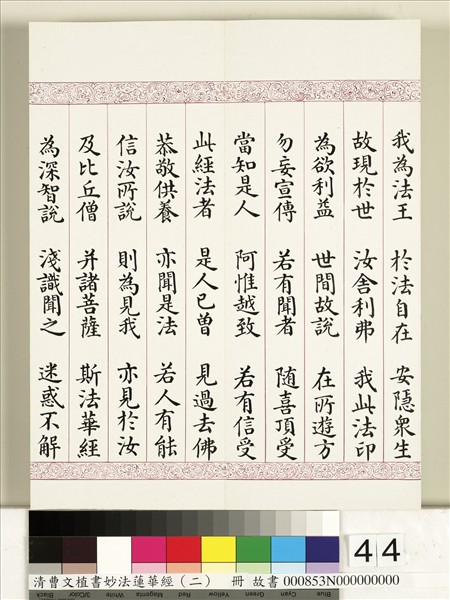 我為法王　於法自在　安隱眾生
故現於世　汝舍利弗　我此法印
為欲利益　世間故說　在所遊方
勿妄宣傳　若有聞者　隨喜頂受
當知是人　阿惟越致　若有信受
此經法者　是人已曾　見過去佛
恭敬供養　亦聞是法　若人有能
信汝所說　則為見我　亦見於汝
及比丘僧　并諸菩薩　斯法華經
為深智說　淺識聞之　迷惑不解
44
清曹文植書妙法蓮華經（二）　冊　故書 000853N000000000
Blue Cyan Green Yellow Red Magenta White 3/Color Black